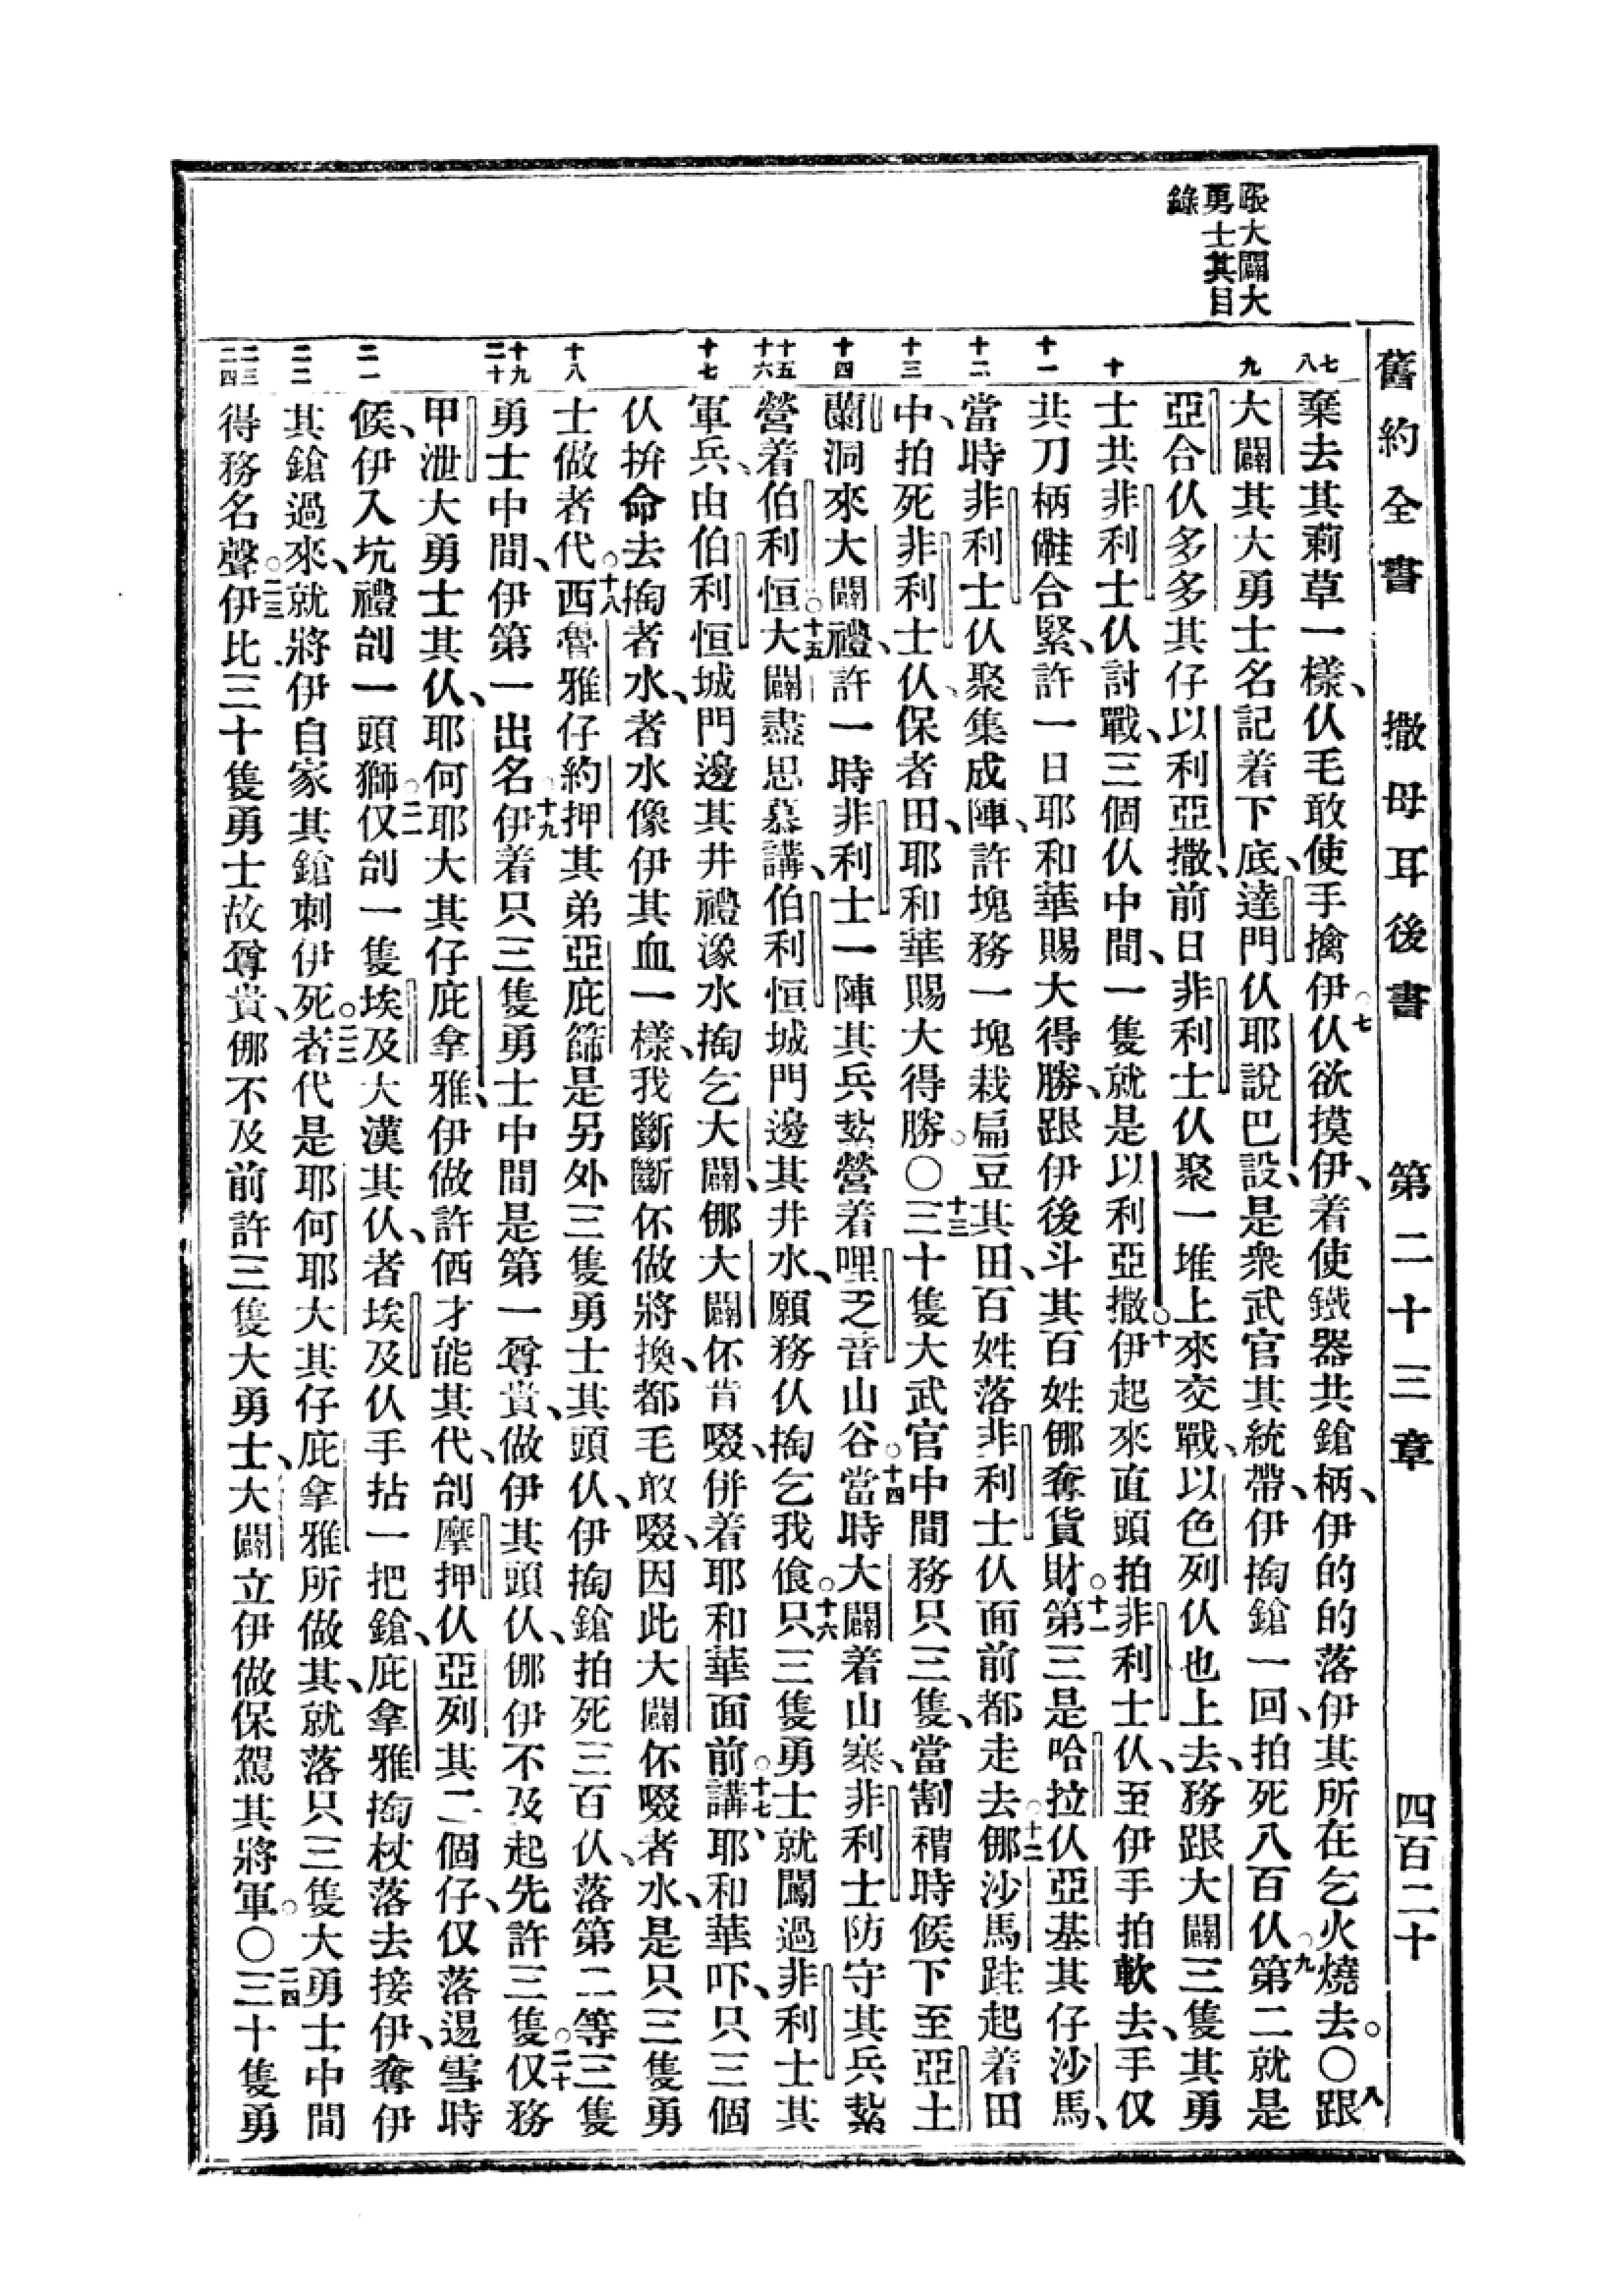 舊約全書 撒母耳後書 第二十三章 四百二十
跟大闢大
勇士其目
錄
七 八 九 十 十一 十二 十三 十四 十五 十六 十七 十八 十九 二十 二一 二二 二三 二四
棄去其莿草一樣、仈毛敢使手擒伊。七仈欲摸伊、着使鐵器共鎗柄、伊的的落伊其所在乞火燒去。〇八跟
大闢其大勇士名記着下底、達門仈耶說巴設、是衆武官其統帶、伊掏鎗一回、拍死八百仈。九第二就是
亞合仈多多其仔以利亞撒、前日非利士仈聚一堆上來交戰、以色列仈也上去、務跟大闢三隻其勇
士共非利士仈討戰、三個仈中間、一隻就是以利亞撒。十伊起來直頭拍非利士仈、至伊手拍軟去、手仅
共刀柄𨿽合緊、許一日耶和華賜大得勝、跟伊後斗其百姓㑚奪貨財。十一第三是哈拉仈亞基其仔沙馬、
當時非利士仈聚集成陣、許塊務一塊栽扁豆其田、百姓落非利士仈面前都走去。十二㑚沙馬跬起着田
中、拍死非利士仈、保者田、耶和華賜大得勝。〇十三三十隻大武官中間務只三隻、當割䆀時候下至亞土
蘭洞來大闢禮、許一時非利士一陣其兵紮營着哩乏音山谷。十四當時大闢着山寨、非利士防守其兵紮
營着伯利恒。十五大闢盡思慕講、伯利恒城門邊其井水、願務仈掏乞我飡。十六只三隻勇士就闖過非利士其
軍兵、由伯利恒城門邊其井禮潒水掏乞大闢、㑚大闢伓肯啜、併着耶和華面前。十七講、耶和華吓、只三個
仈拚命去掏者水、者水像伊其血一樣、我斷斷伓做將換、都毛敢啜、因此大闢伓啜者水、是只三隻勇
士做者代。十八西魯雅仔約押其弟亞庇篩是另外三隻勇士其頭仈、伊掏鎗拍死三百仈、落第二等三隻
勇士中間、伊第一出名。十九伊着只三隻勇士中間是第一尊貴、做伊其頭仈、㑚伊不及起先許三隻。二十仅務
甲泄大勇士其仈、耶何耶大其仔庇拿雅、伊做許価才能其代、刣摩押仈亞列其二個仔、仅落逿雪時
候、伊入坑禮刣一頭獅。二一仅刣一隻埃及大漢其仈、者埃及仈手拈一把鎗、庇拿雅掏杖落去接伊、奪伊
其鎗過來、就將伊自家其鎗刺伊死。二二者代是耶何耶大其仔庇拿雅所做其、就落只三隻大勇士中間
得務名聲。二三伊比三十隻勇士故尊貴、㑚不及前許三隻大勇士、大闢立伊做保駕其將軍。〇二四三十隻勇